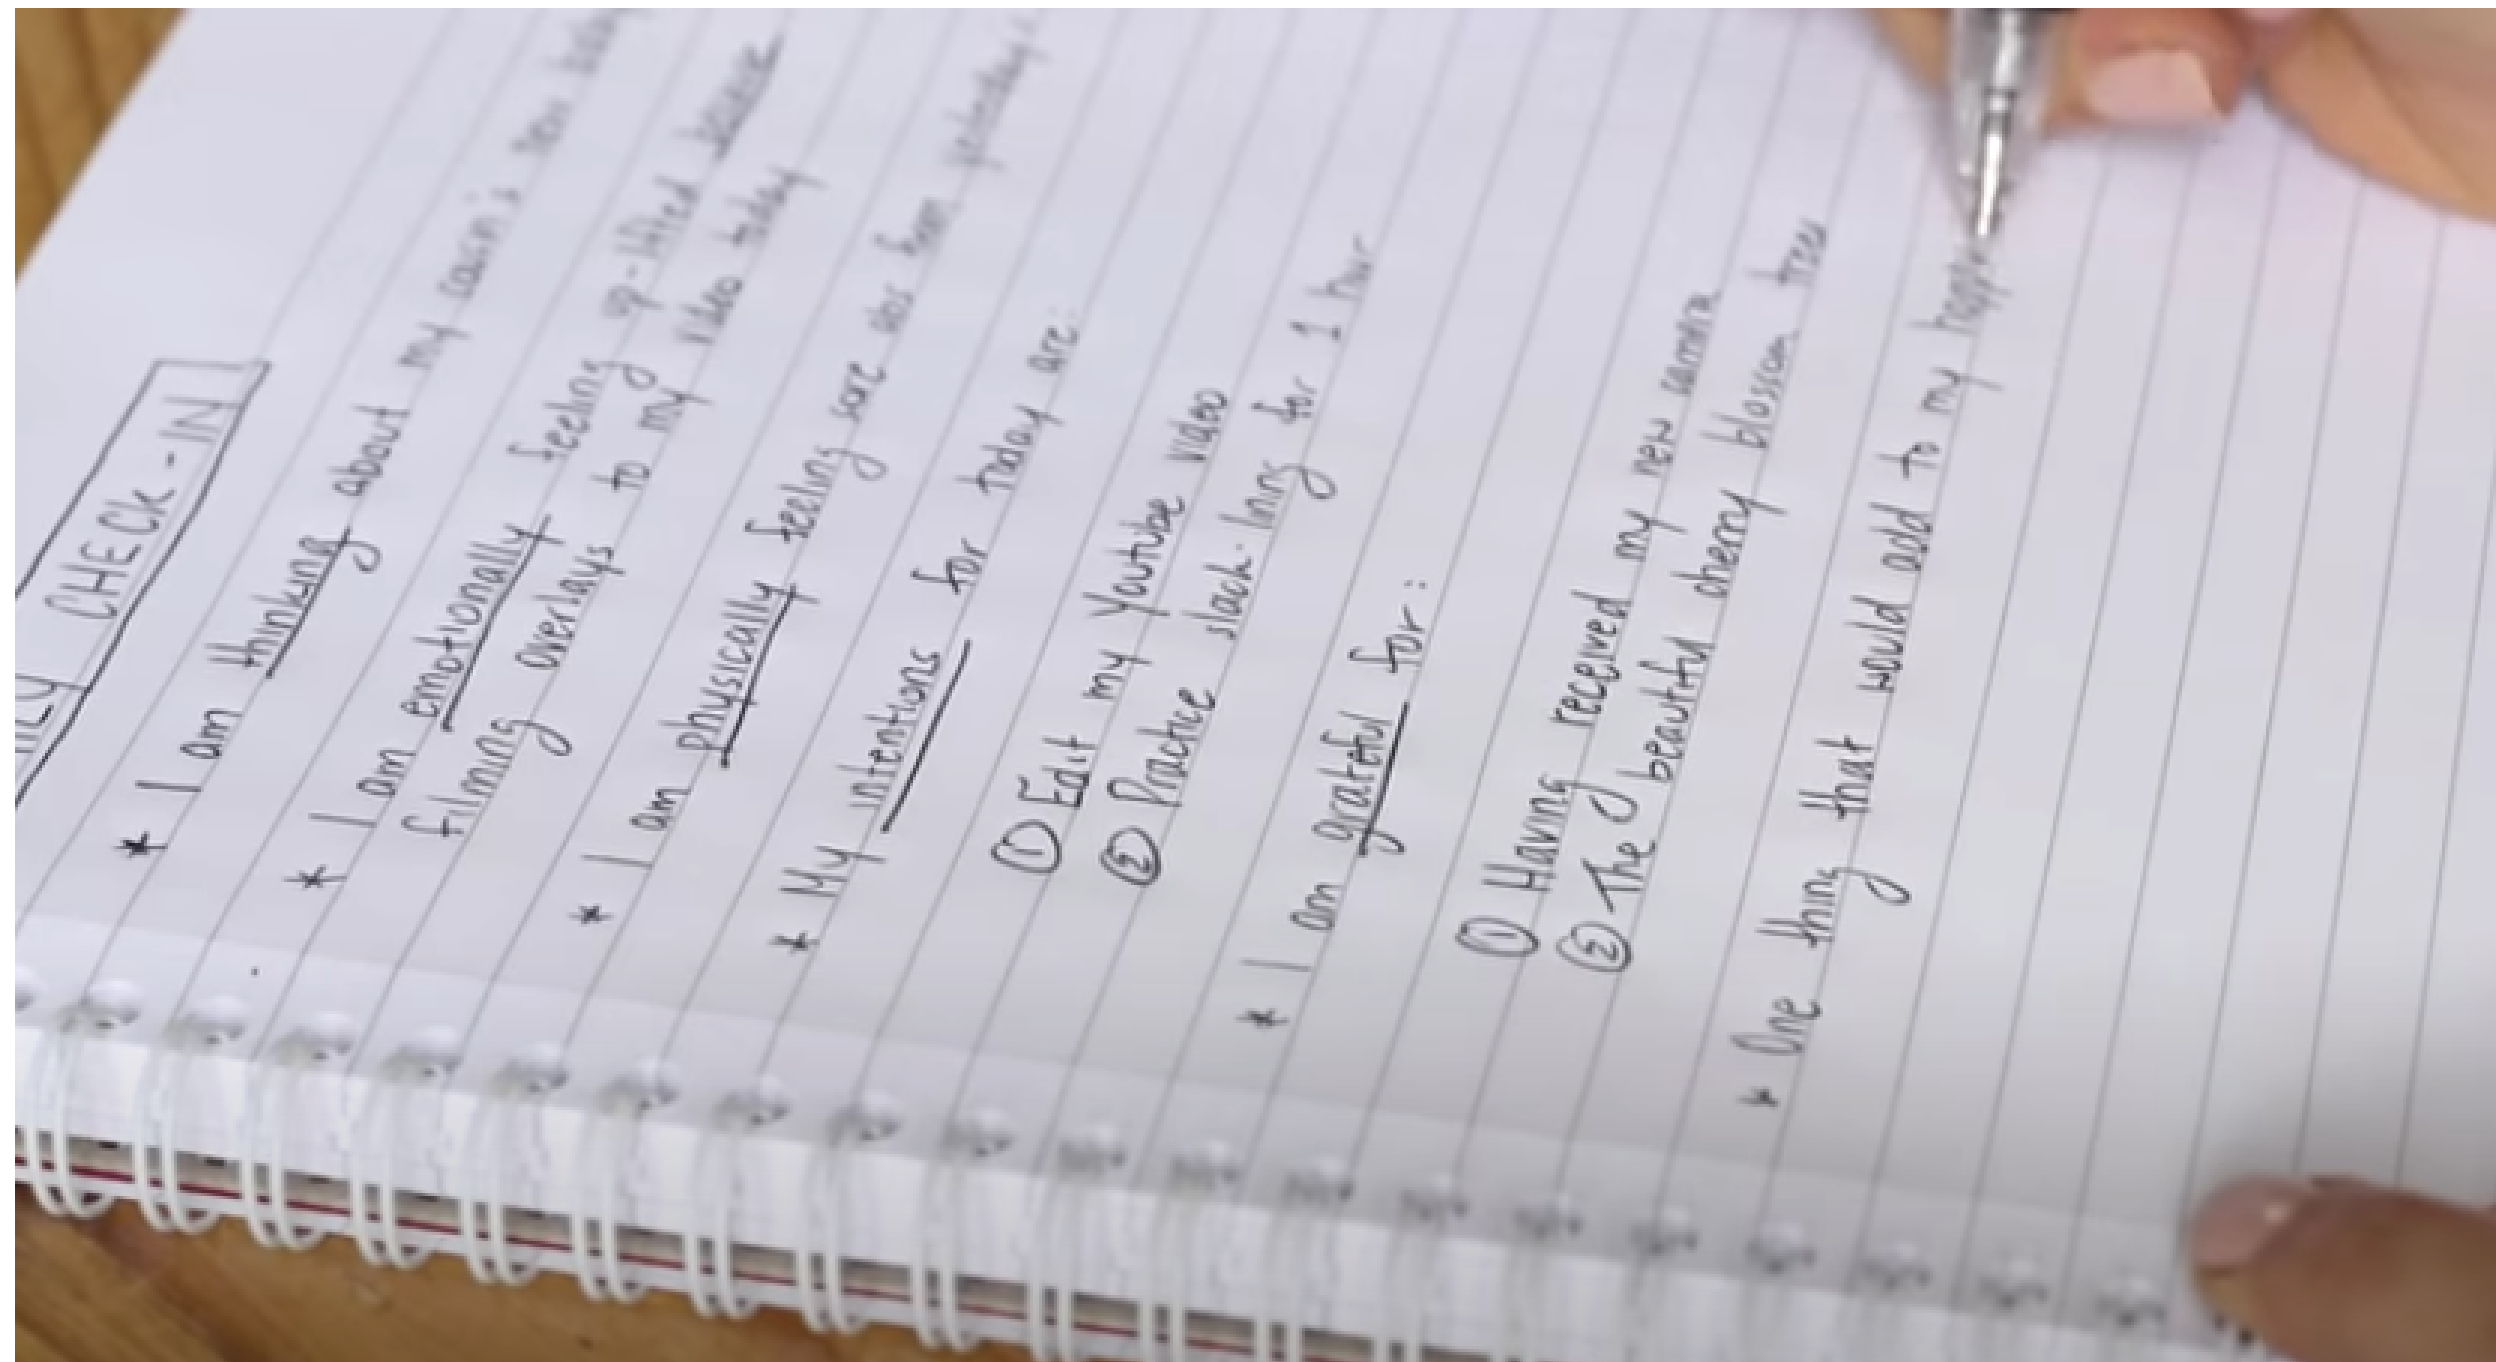 CHECK-IN
* I am thinking about my cousin's new baby
* I am emotionally feeling up-lifted because
filming overlays to my video today
* I am physically feeling sore abs from yesterday
* My intentions for today are:
① Edit my Youtube video
② Practice slack-lining for 1 hour
* I am grateful for:
① Having received my new camera
② The beautiful cherry blossom trees
* One thing that would add to my